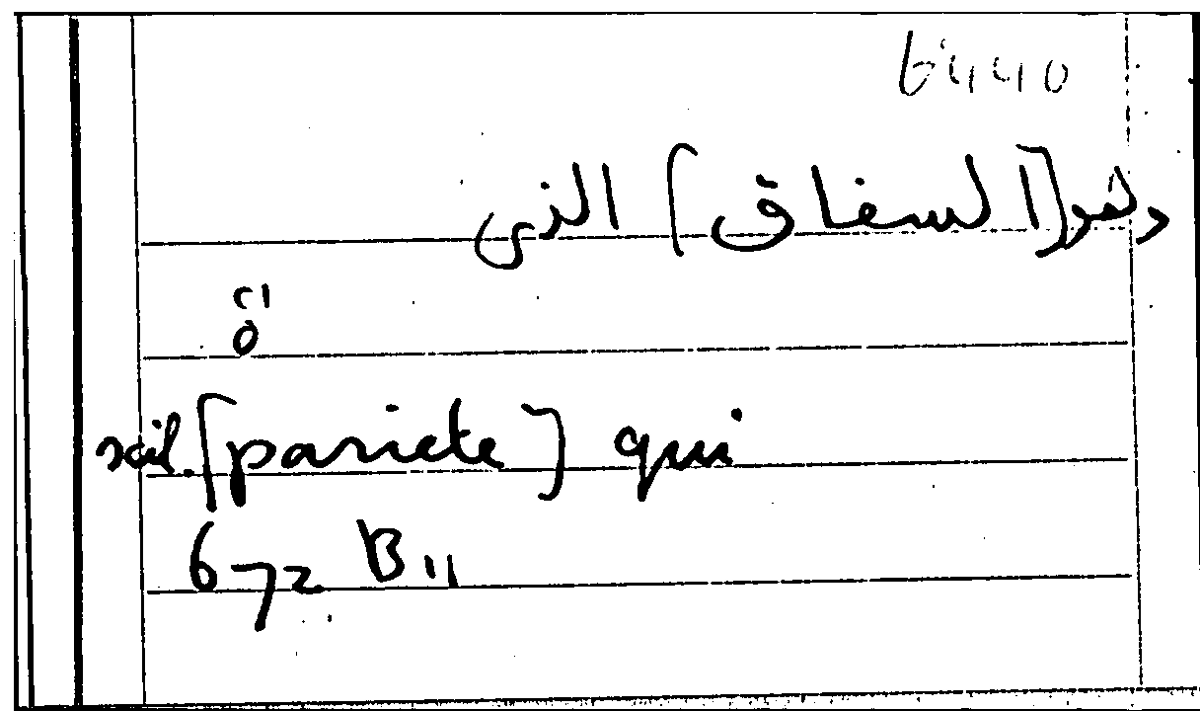 64440
وهو [السفاق] الذى
ὅ
scil. [pariete] qui
672 B 11